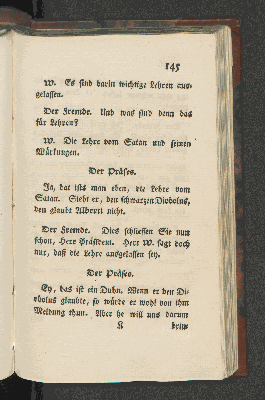 145
W. Es sind darin wichtige Lehren aus-
gelassen.
Der Fremde. Und was sind denn das
für Lehren?
W. Die Lehre vom Satan und seinen
Würkungen.
Der Präses.
Ja, das ists man eben, die Lehre vom
Satan. Sieht er, den schwarzen Diobolus,
den glaubt Alberti nicht.
Der Fremde. Dies schliessen Sie nur
schon, Herr Präsident. Herr W. sagt doch
nur, daß die Lehre ausgelassen sey.
Der Präses.
Ey, das ist ein Duhn. Wenn er den Di-
obolus glaubte, so würde er wohl von ihm
Meldung thun. Aber he will uns darum
K